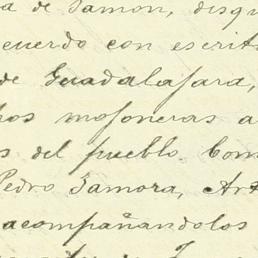 a de Jamon, disqu
cuerdo con escrit
de Guadalajara,
hos mojoneras a
s del pueblo. Com
Pedro Zamora, Art
acompañandolos